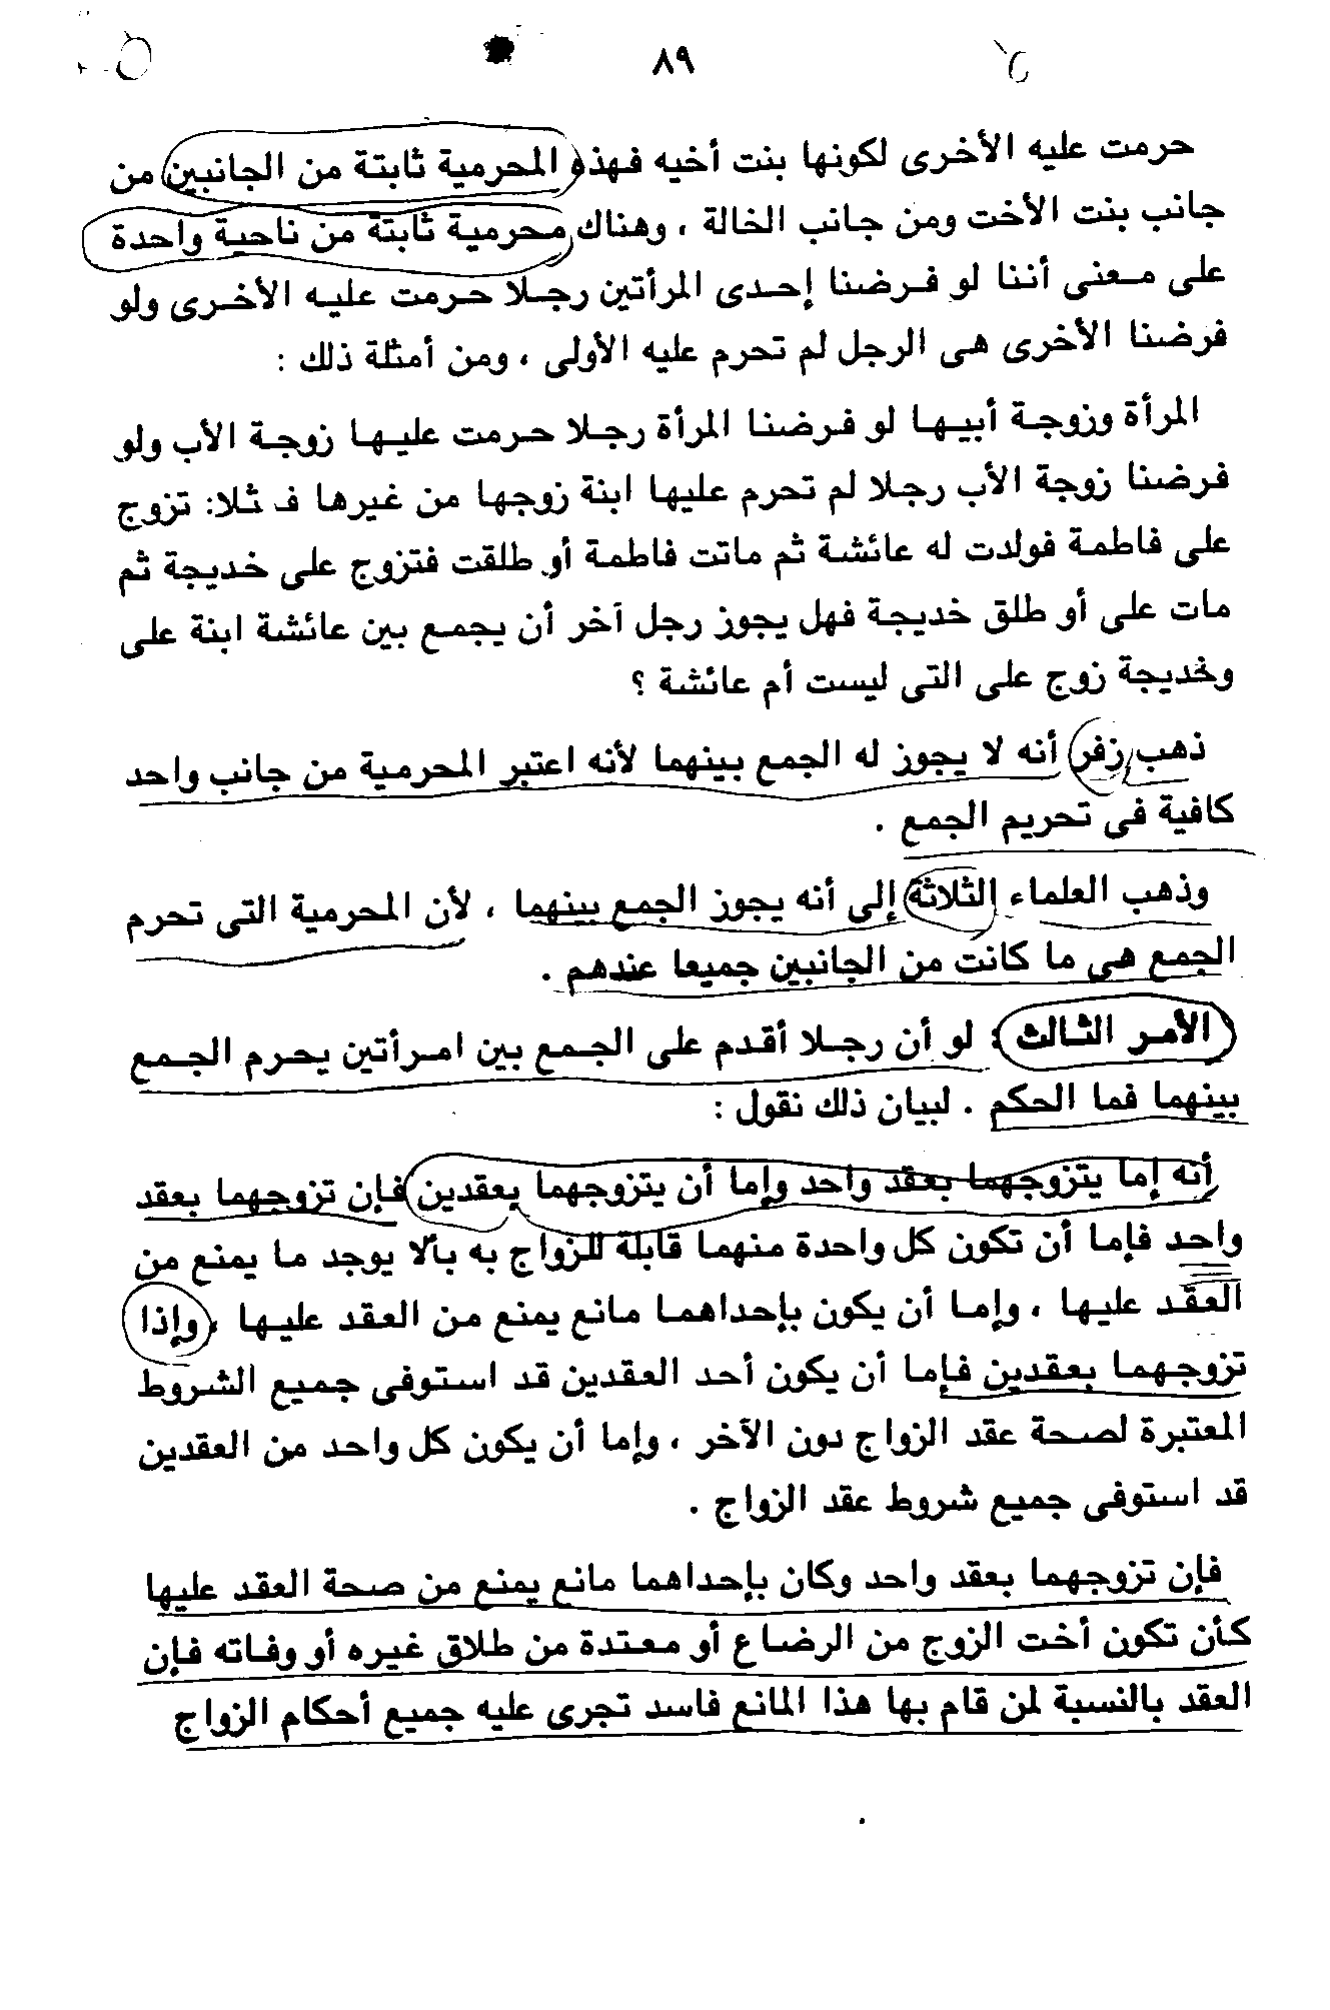 ٨٩
حرمت عليه الأخرى لكونها بنت أخيه فهذه المحرمية ثابتة من الجانبين من
جانب بنت الأخت ومن جانب الخالة ، وهناك محرمية ثابتة من ناحية واحدة
على معنى أننا لو فرضنا إحدى المرأتين رجلا حرمت عليه الأخرى ولو
فرضنا الأخرى هى الرجل لم تحرم عليه الأولى ، ومن أمثلة ذلك :
المرأة وزوجة أبيها لو فرضنا المرأة رجلا حرمت عليها زوجة الأب ولو
فرضنا زوجة الأب رجلا لم تحرم عليها ابنة زوجها من غيرها فمثلا: تزوج
على فاطمة فولدت له عائشة ثم ماتت فاطمة أو طلقت فتزوج على خديجة ثم
مات على أو طلق خديجة فهل يجوز رجل آخر أن يجمع بين عائشة ابنة على
وخديجة زوج على التى ليست أم عائشة ؟
ذهب زفر أنه لا يجوز له الجمع بينهما لأنه اعتبر المحرمية من جانب واحد
كافية فى تحريم الجمع .
وذهب العلماء الثلاثة إلى أنه يجوز الجمع بينهما ، لأن المحرمية التى تحرم
الجمع هى ما كانت من الجانبين جميعا عندهم .
الأمر الثالث : لو أن رجلا أقدم على الجمع بين امرأتين يحرم الجمع
بينهما فما الحكم . لبيان ذلك نقول :
أنه إما يتزوجهما بعقد واحد وإما أن يتزوجهما بعقدين فإن تزوجهما بعقد
واحد فإما أن تكون كل واحدة منهما قابلة للزواج به بألا يوجد ما يمنع من
العقد عليها ، وإما أن يكون بإحداهما مانع يمنع من العقد عليها ، وإذا
تزوجهما بعقدين فإما أن يكون أحد العقدين قد استوفى جميع الشروط
المعتبرة لصحة عقد الزواج دون الآخر ، وإما أن يكون كل واحد من العقدين
قد استوفى جميع شروط عقد الزواج .
فإن تزوجهما بعقد واحد وكان بإحداهما مانع يمنع من صحة العقد عليها
كأن تكون أخت الزوج من الرضاع أو معتدة من طلاق غيره أو وفاته فإن
العقد بالنسبة لمن قام بها هذا المانع فاسد تجرى عليه جميع أحكام الزواج